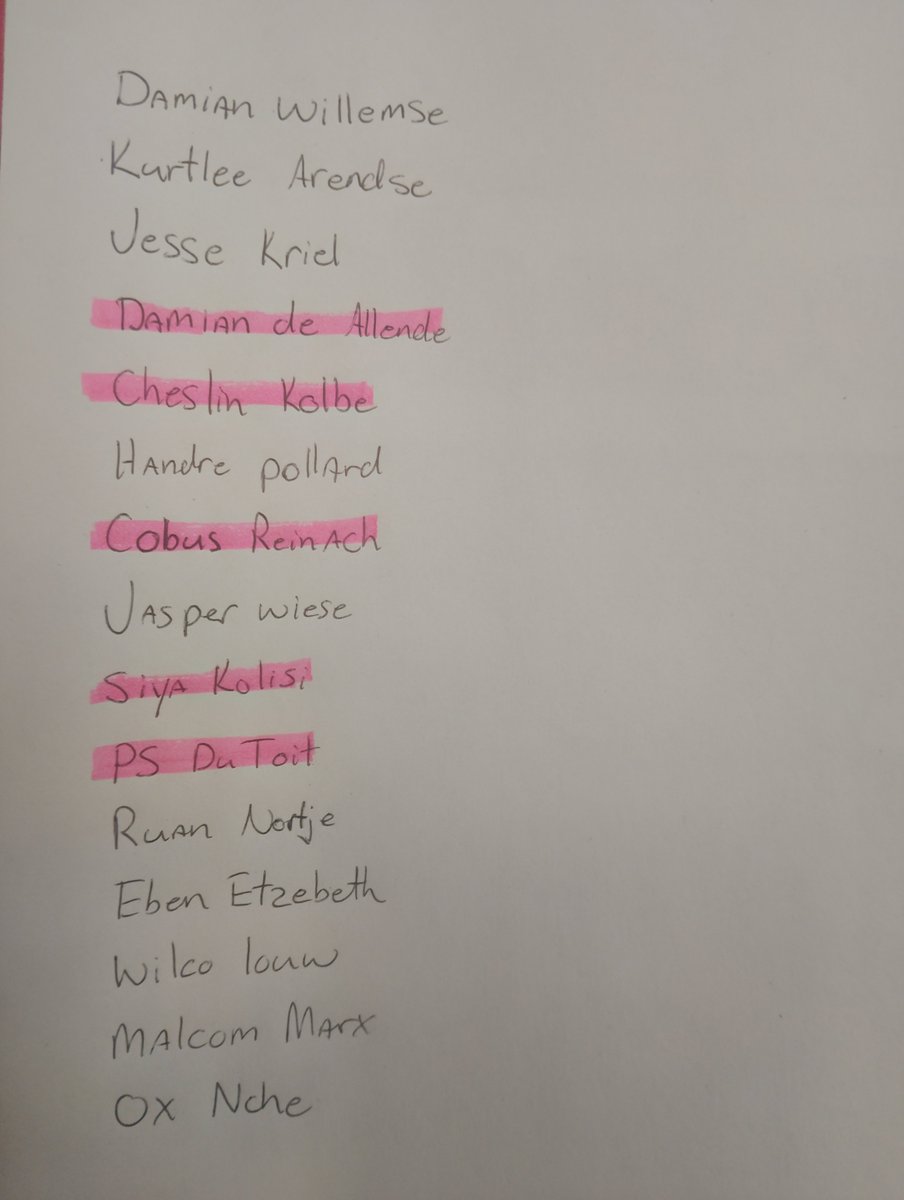 Damian Willemse
Kurtlee Arendse
Jesse Kriel
Damian de Allende
Cheslin Kolbe
Handre pollard
Cobus Reinach
Jasper wiese
Siya Kolisi
PS Du Toit
Ruan Nortje
Eben Etzebeth
Wilco louw
Malcom Marx
Ox Nche